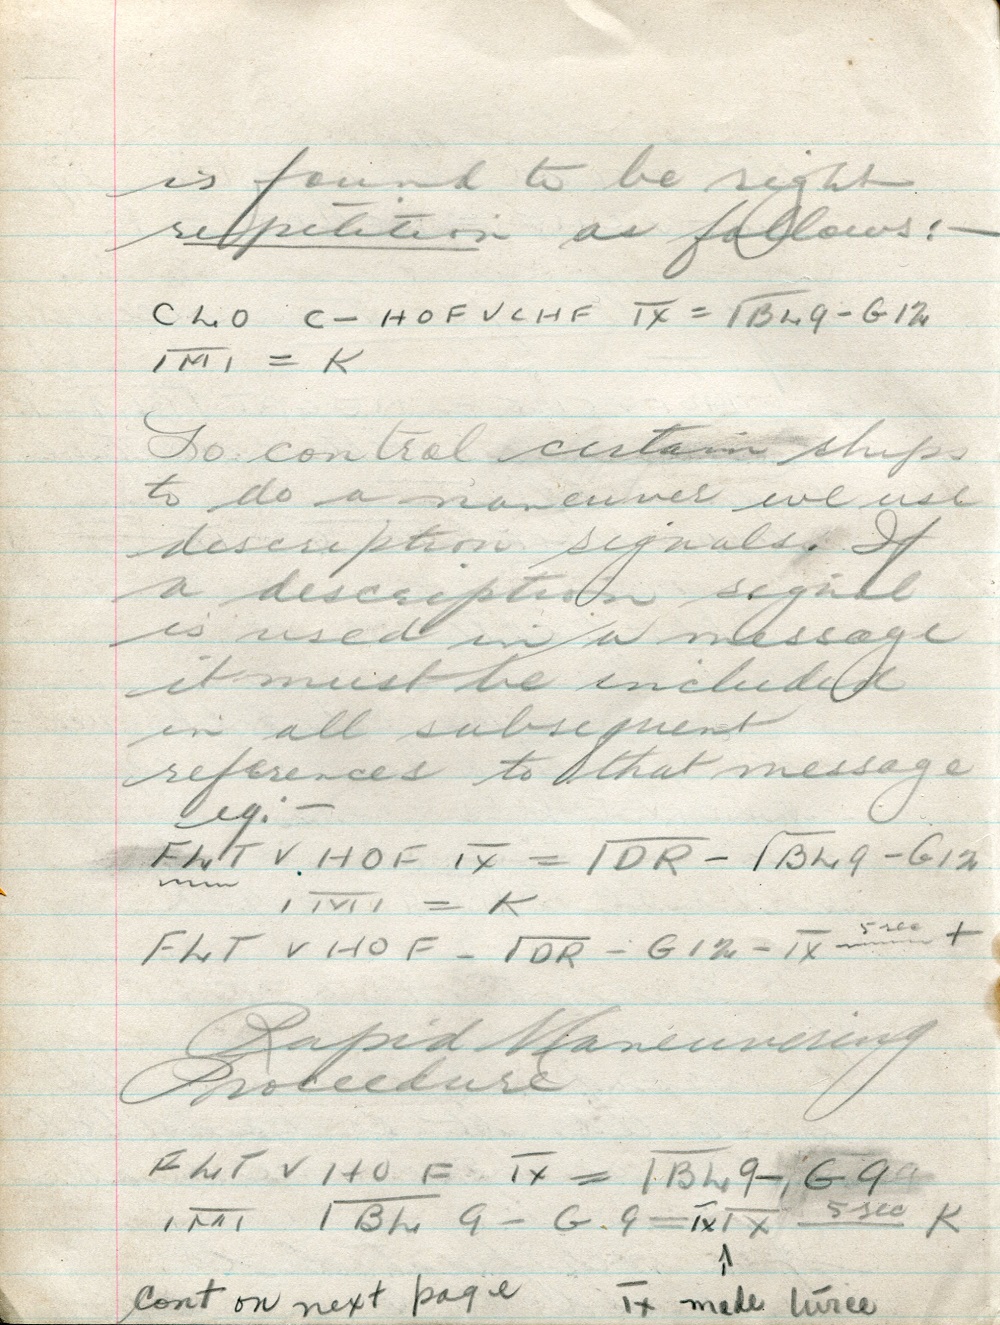 is found to be right
repetition as follows:—
CL0 C- HOF V CHF IX = BL9-G12
IMI = K
To control certain ships
to do a maneuver we use
description signals. If
a description signal
is used in a message
it must be included
in all subsequent
references to that message
eg:-
FLT V HOF IX = DR - BL9-G12
IMI = K
FLT V HOF - DR - G12 - IX 5 sec +
Rapid Maneuvering
Procedure
FLT V HOF IX = BL9-, G 9
IMI BL 9 - G.9 = IX IX 5 sec K
↑
cont on next page IX made twice